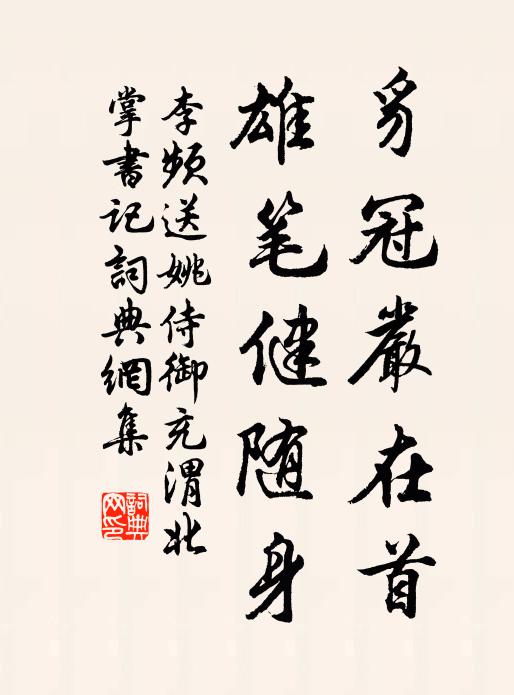 豸冠嚴在首
雄笔健随身
李频送姚侍御充渭北
掌書记詞典網集
詞典网印